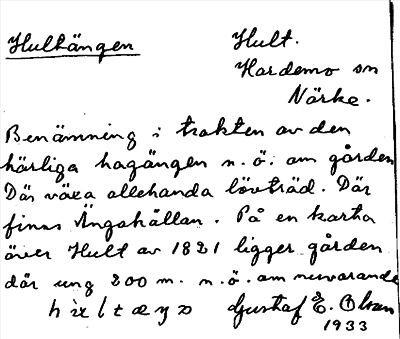 Hultängen
Hult.
Hardemo sn
Närke.
Benämning i trakten av den
härliga hagängen n.ö. om gården
Där växa allehanda lövträd. Där
finns Ängahällan. På en karta
över Hult av 1821 ligger gården
där ung 200 m. n.ö. om nuvarande
Gustaf E. Olsson
1933